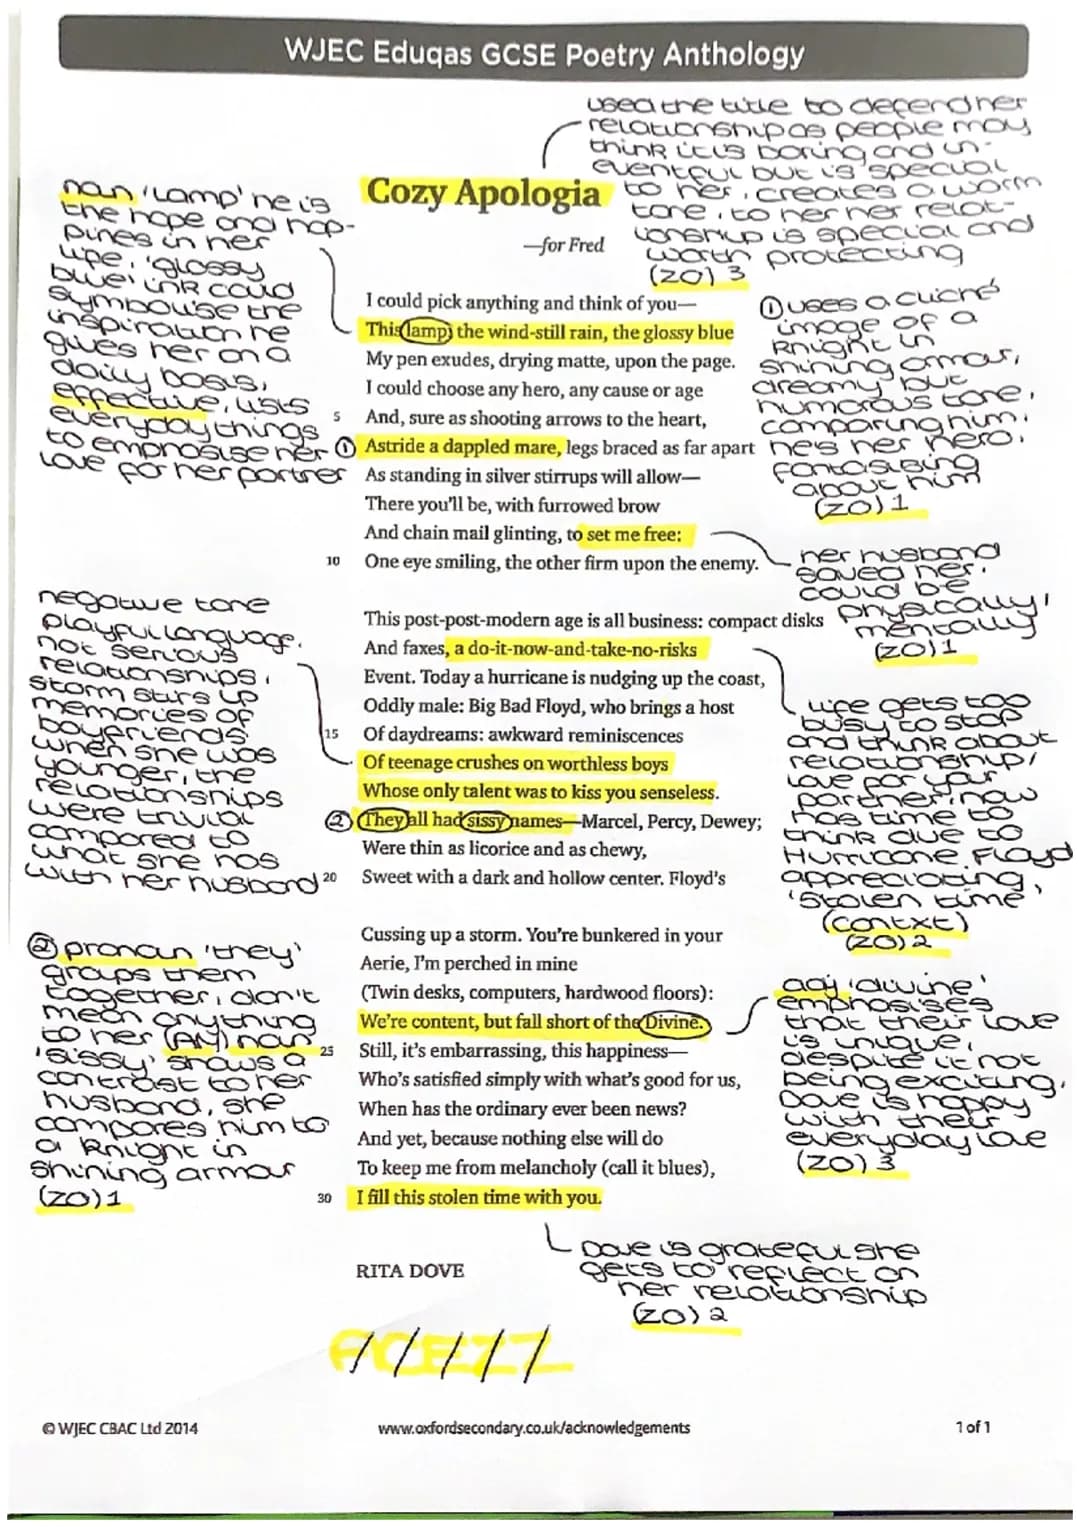 WJEC Eduqas GCSE Poetry Anthology
used the title to defend her
relationship as people may
think it is boring and un-
eventful but is special
to her, creates a warm
tone, to her her relat-
ionship is special and
worth protecting
(ZO) 3
Cozy Apologia
—for Fred
nan 'lamp' he is
the hope and hap-
pines in her
life, 'glossy
blue' ink could
symbolise the
inspiration he
gives her on a
daily basis,
effective, lists
everyday things
to emphasise her
love for her partner
I could pick anything and think of you—
This lamp, the wind-still rain, the glossy blue
My pen exudes, drying matte, upon the page.
I could choose any hero, any cause or age
5 And, sure as shooting arrows to the heart,
① Astride a dappled mare, legs braced as far apart
As standing in silver stirrups will allow—
There you'll be, with furrowed brow
And chain mail glinting, to set me free:
10 One eye smiling, the other firm upon the enemy.
① uses a cliché
image of a
knight in
shining armour,
dreamy but
humorous tone,
comparing him.
he's her hero.
fantasising
about him
(ZO) 1
her husband
saved her.
could be
physically/
mentally
(ZO) 1
This post-post-modern age is all business: compact disks
And faxes, a do-it-now-and-take-no-risks
Event. Today a hurricane is nudging up the coast,
Oddly male: Big Bad Floyd, who brings a host
15 Of daydreams: awkward reminiscences
Of teenage crushes on worthless boys
Whose only talent was to kiss you senseless.
② They all had sissy names—Marcel, Percy, Dewey;
Were thin as licorice and as chewy,
20 Sweet with a dark and hollow center. Floyd's
negative tone
playful language,
not serious
relationships,
storm stirs up
memories of
boyfriends
when she was
younger, the
relationships
were trivial
compared to
what she has
with her husband
life gets too
busy to stop
and think about
relationship/
love for your
partner, now
has time to
think due to
Hurricane Floyd
appreciating,
'stolen time'
(contxt)
(ZO) 2
Cussing up a storm. You're bunkered in your
Aerie, I'm perched in mine
(Twin desks, computers, hardwood floors):
We're content, but fall short of the Divine.
25 Still, it's embarrassing, this happiness—
Who's satisfied simply with what's good for us,
When has the ordinary ever been news?
And yet, because nothing else will do
To keep me from melancholy (call it blues),
30 I fill this stolen time with you.
② pronoun 'they'
groups them
together, don't
mean anything
to her (AM) noun
'sissy' shows a
contrast to her
husband, she
compares him to
a knight in
shining armour
(ZO) 1
adj 'divine'
emphasises
that their love
is unique,
despite it not
being exciting.
Dove is happy
with their
everyday love
(ZO) 3
Dove is grateful she
gets to reflect on
her relationship
(ZO) 2
RITA DOVE
ACEZZ
© WJEC CBAC Ltd 2014
www.oxfordsecondary.co.uk/acknowledgements
1 of 1